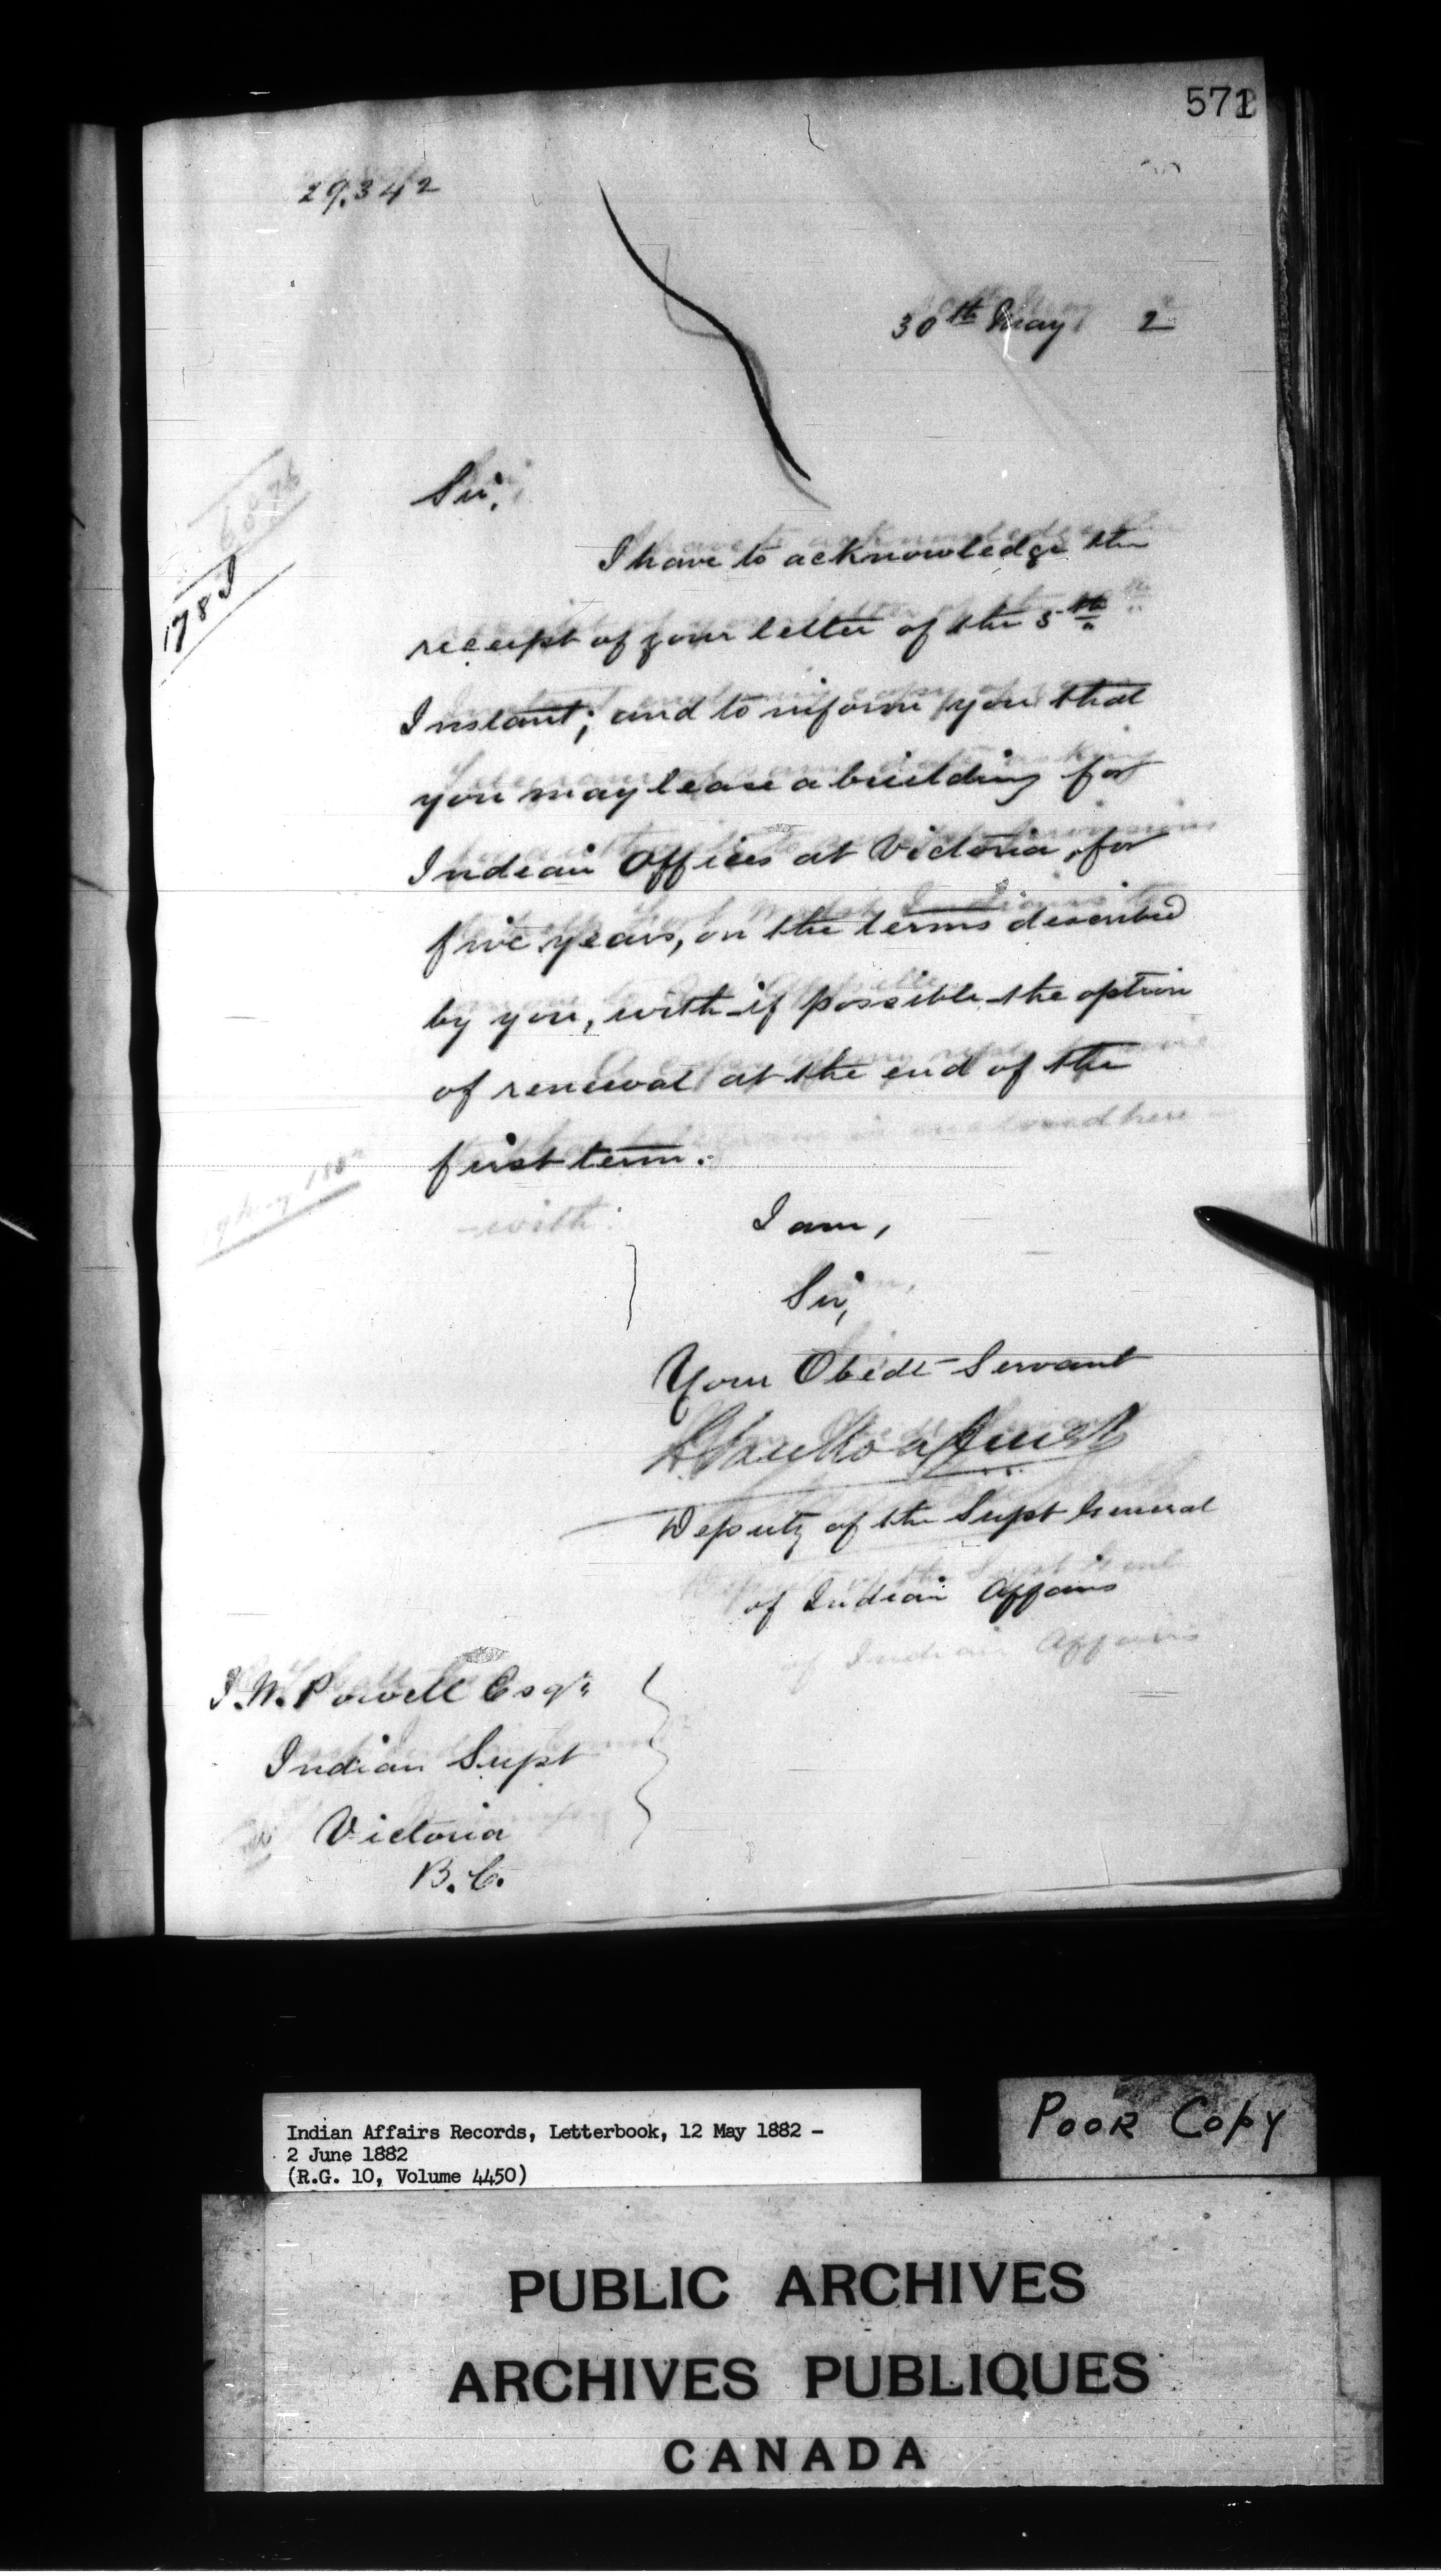 571
29.342
30th May 2
Sir,
I have to acknowledge the
receipt of your letter of the 5th
Instant; and to inform you that
you may lease a building for
Indian Offices at Victoria, for
five years, on the terms described
by you, with if possible the option
of renewal at the end of the
first term.
I am,
Sir,
Your Obedt Servant
Deputy of the Supt General
of Indian Affairs
I. W. Powell Esqr
Indian Supt
Victoria
B.C.
Indian Affairs Records, Letterbook, 12 May 1882 –
2 June 1882
(R.G. 10, Volume 4450)
POOR COPY
PUBLIC ARCHIVES
ARCHIVES PUBLIQUES
CANADA